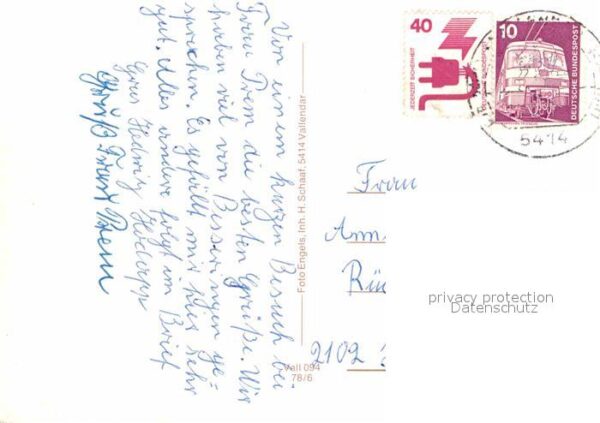 Von einem kurzen Besuch bei
Frau Prem die besten Grüße. Wir
haben viel von Bissingen ge-
sprochen. Es gefällt mir hier sehr
gut. Alles andere folgt im Brief
Gruß Frau Prem
Foto Engels, Inh. H. Schaaf, 5414 Vallendar
Vall 094
78/6
40
JEDERZEIT SICHERHEIT
DEUTSCHE BUNDESPOST
10
DEUTSCHE BUNDESPOST
5414
Frau
Ann
Rü
2102
privacy protection
Datenschutz